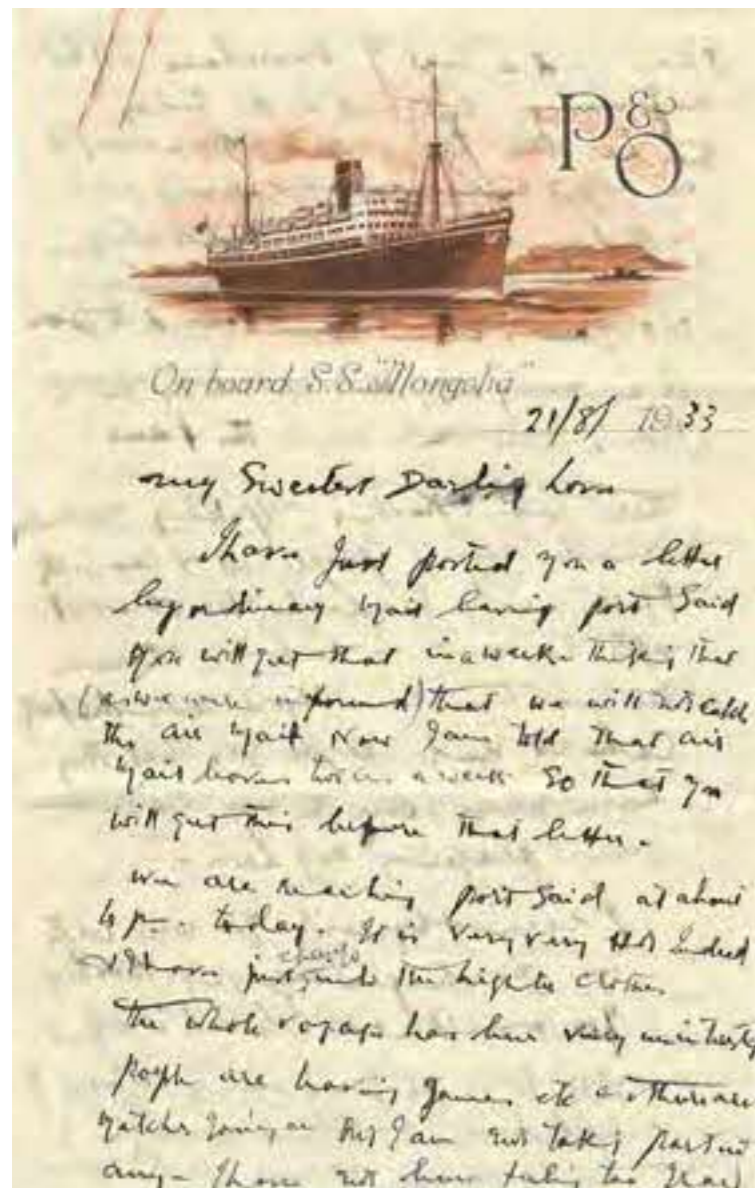 P&O
On board S.S. "Mongolia"
21/8/ 1933
My Sweetest Darling Love
I have just posted you a letter
by ordinary mail leaving port Said
you will get that in a week thinking that
(as we were informed) that we will not catch
the air mail Now I am told that air
mail leaves twice a week So that you
will get this before that letter.
We are reaching port Said at about
4 p.. today. It is very very Hot Indeed
& I have just change into the lighter clothes
The whole voyage has been very
people are having games etc & there are
matches going on But I am not taking part in
any. I have not been feeling too